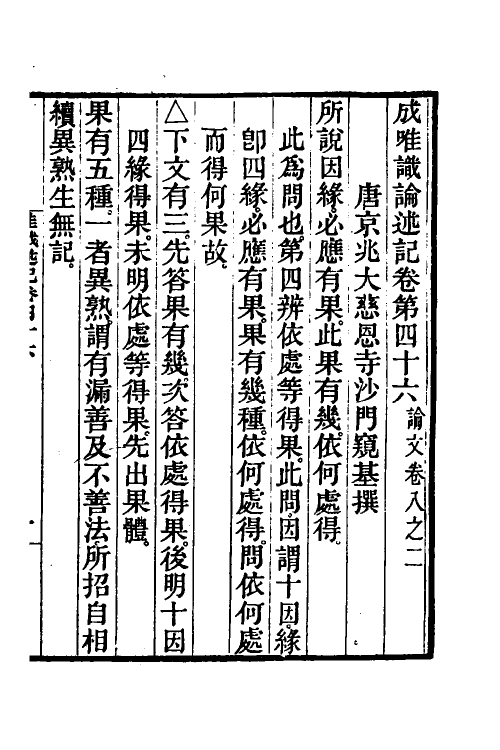 成唯識論述記卷第四十六 論文卷八之二
唐京兆大慈恩寺沙門窺基撰
所說因緣。必應有果。此果有幾。依何處得。
此爲問也。第四辨依處等得果。此問。因謂十因。緣
卽四緣。必應有果。果有幾種。依何處得。問依何處
而得何果故。
△下文有三。先答果有幾。次答依處得果。後明十因
四緣得果。未明依處等得果。先出果體。
果有五種。一者異熟。謂有漏善及不善法。所招自相
續異熟生無記。